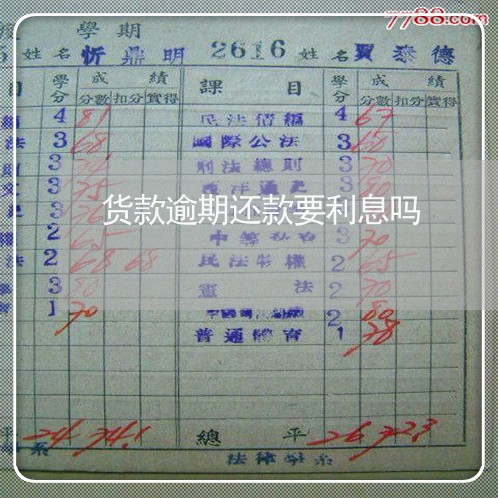 7788.com
學期
姓名 忻鼎明 2616 姓名 賈泰德
目 學分 成績 課目 學分 成績
分數 扣分 實得 分數 扣分 實得
4 81 民法債編 4 67
法 3 68 國際公法 3 60
3 刑法總則 3 70
3 75 西洋通史 3
货款逾期还款要利息吗
2 65 3 70
法 2 68 68 民法物權 2 65
3 憲法 2 70
1 70 2 80
普通體育 1 78
平 24 74.1 總平 26 72.3
系 法律學系